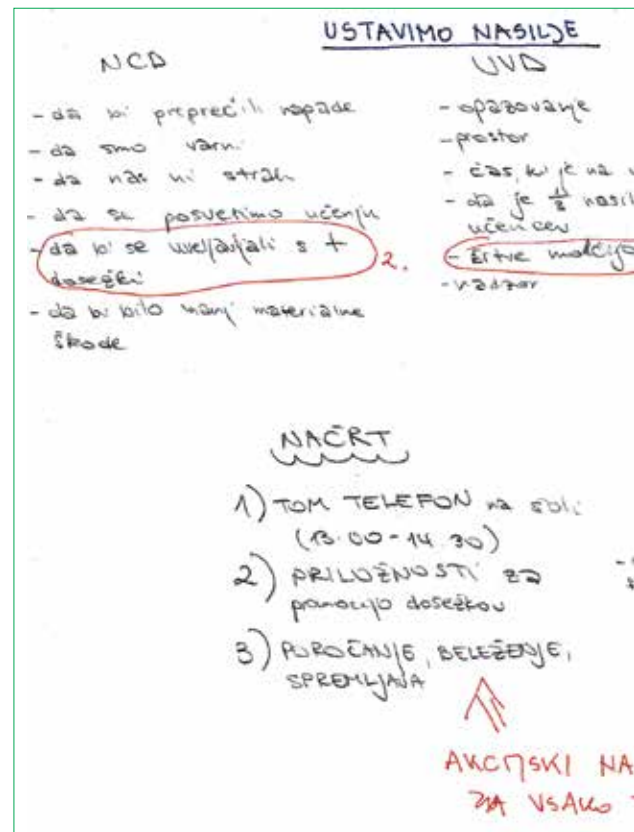 USTAVIMO NASILJE
NCD
- da bi preprečili napade
- da smo varni
- da nas ni strah
- da se posvetimo učenju
- da bi se uveljavljali s +
dosežki
2.
- da bi bilo manj materialne
škode
UVD
- opazovanje
- prostor
- čas, ki je na
- da je 1/3
učencev
- žrtve molčijo
- nadzor
NAČRT
1) TOM TELEFON na šoli
(13.00-14.30)
2) PRILOŽNOSTI za
promocijo dosežkov
3) POROČANJE, BELEŽENJE,
SPREMLJAVA
AKCIJSKI
ZA VSAKO